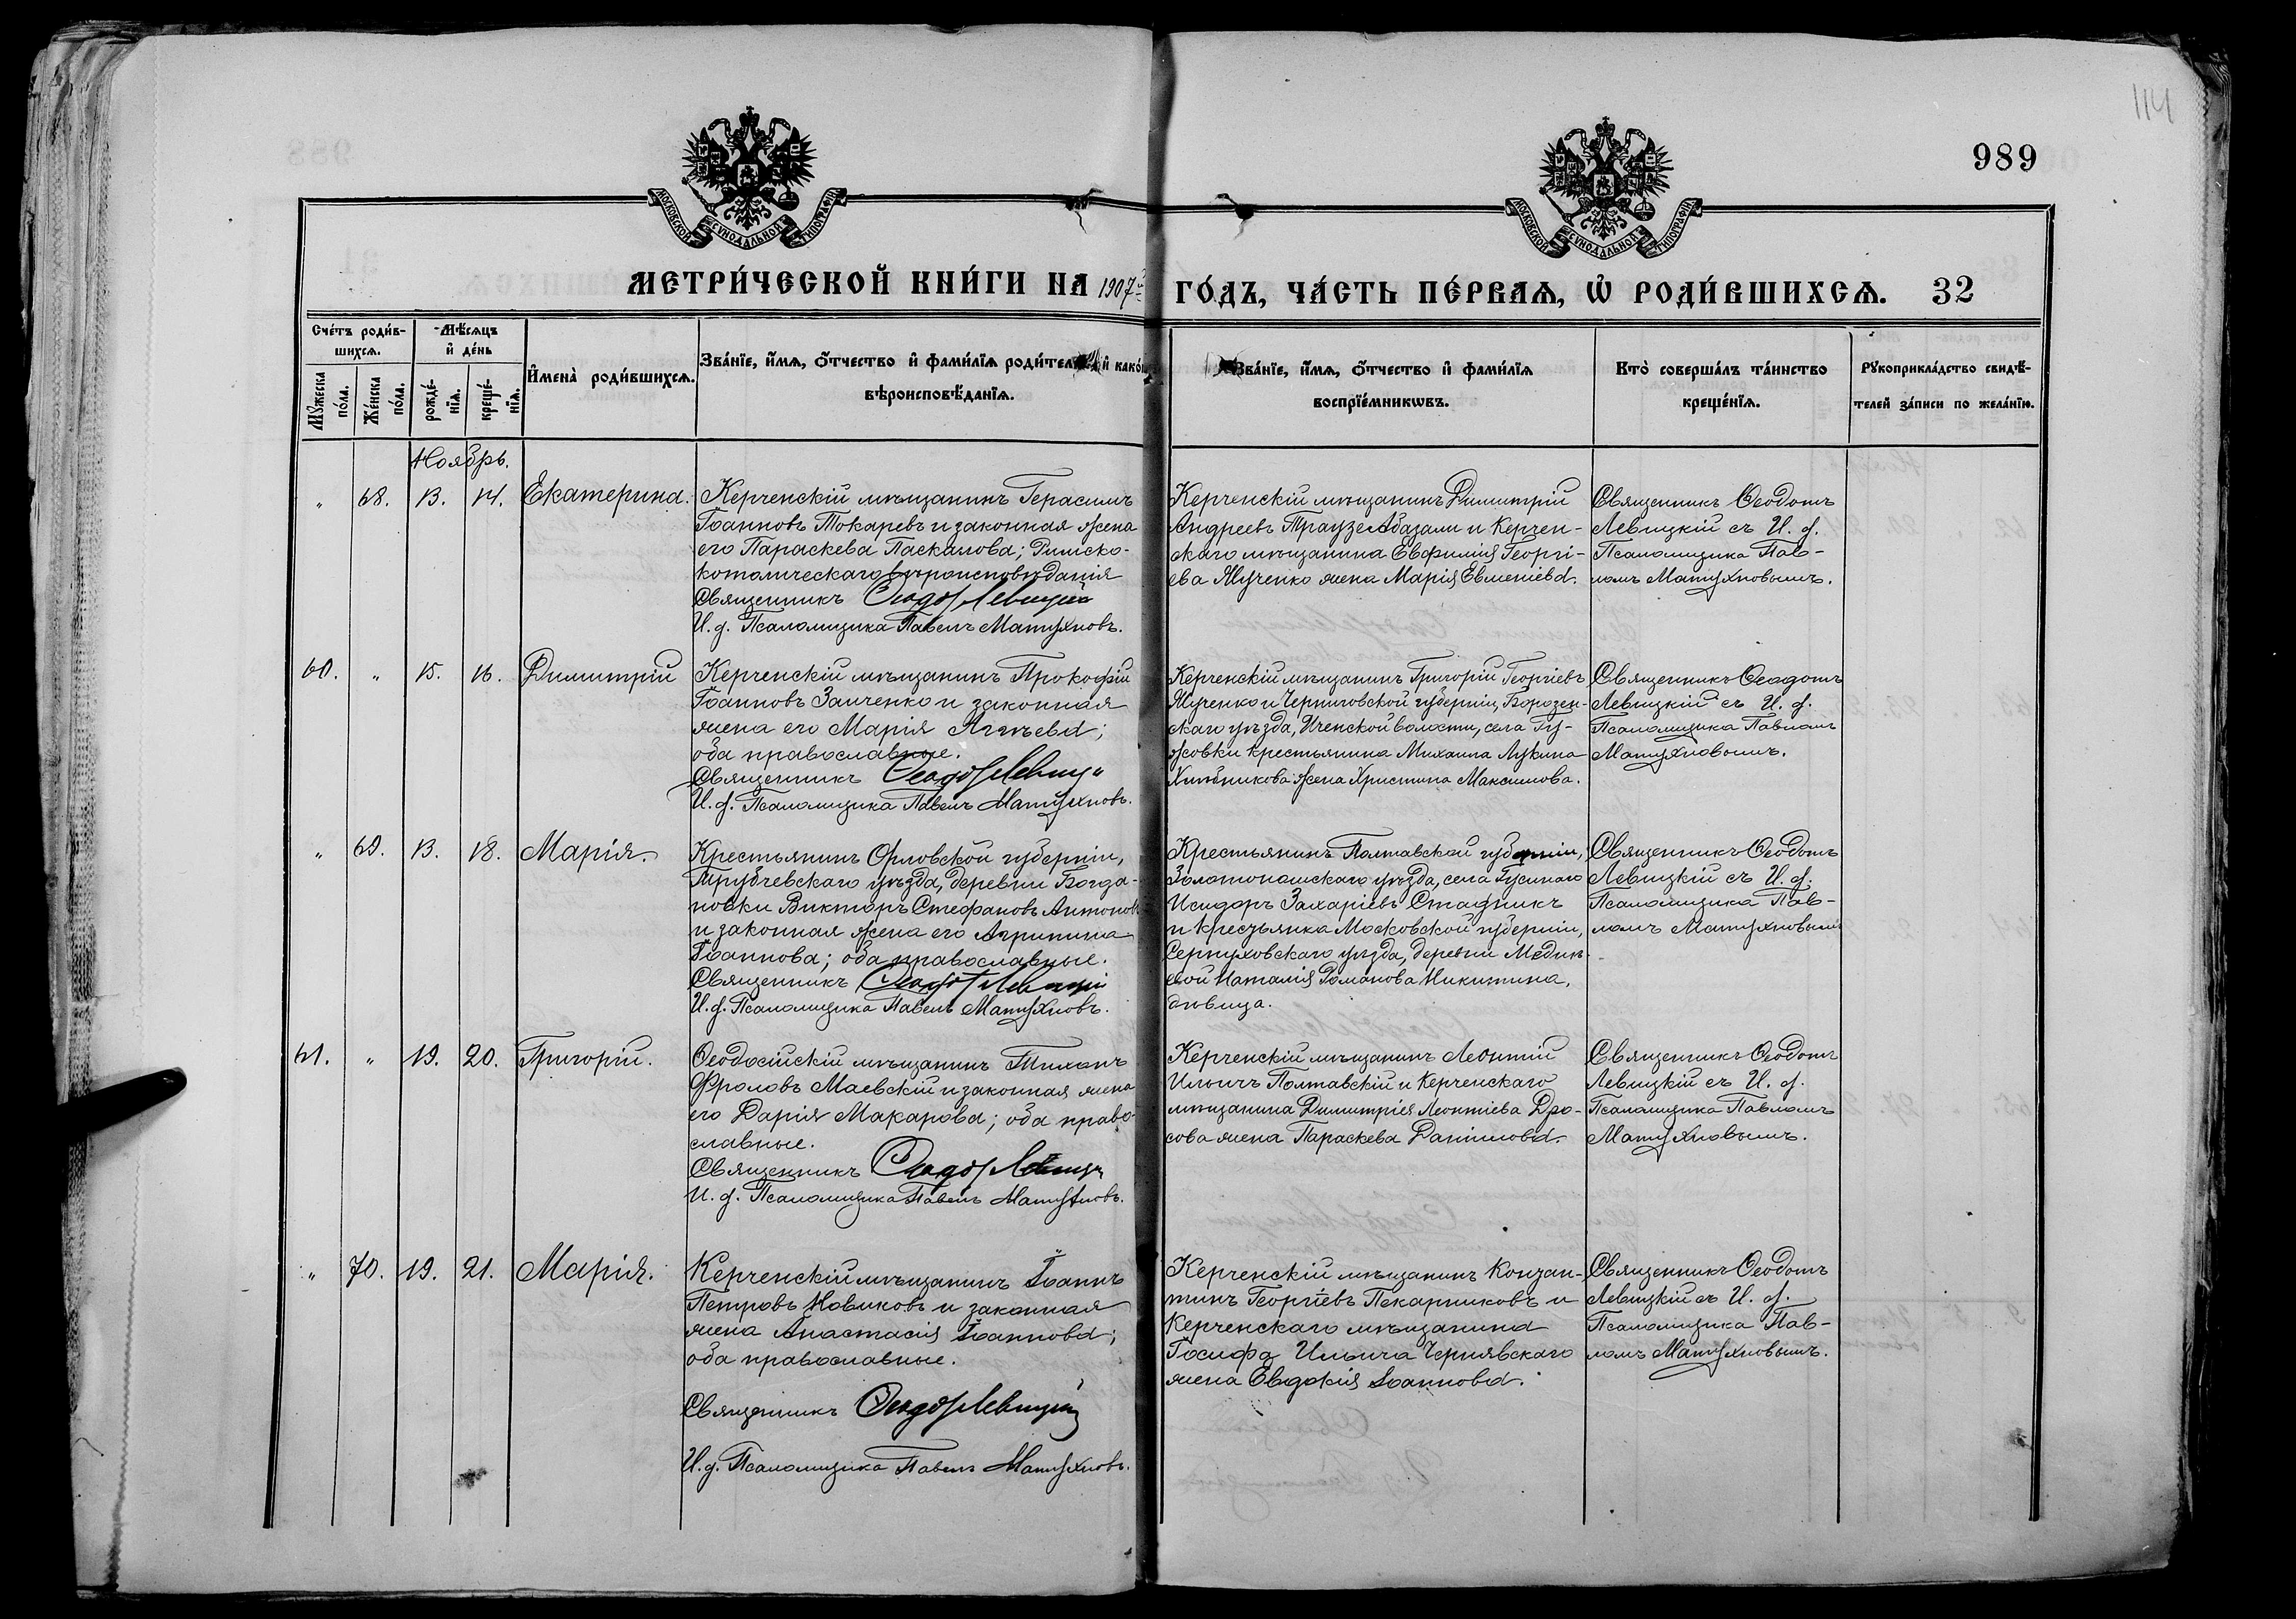 114
989
МОСКОВСКОЙ СѴНОДАЛЬНОЙ ТИПОГРАФІИ
МОСКОВСКОЙ СѴНОДАЛЬНОЙ ТИПОГРАФІИ
МЕТРИ́ЧЕСКОЙ КНИ́ГИ НА 1907й ГО́ДЪ, ЧА́СТЬ ПЕ́РВАѦ, Ѡ҆ РОДИ́ВШИХСѦ. 32
Сче́тъ роди́в-
шихсѧ.
Мѣ́сѧцъ
и҆ де́нь
Мꙋ́жеска по́ла.
Же́нска по́ла.
рожде́-нїѧ.
креще́-нїѧ.
И҆мена̀ роди́вшихсѧ.
Зва́нїе, и҆́мѧ, ѻ҆́тчество и҆ фами́лїѧ роди́тел и҆ како́
вѣроисповѣ́данїѧ.
Зва́нїе, и҆́мѧ, ѻ҆́тчество и҆ фами́лїѧ
воспрїе́мникѡвъ.
Кто̀ соверша́лъ та́инство
креще́нїѧ.
Рꙋкоприкла́дство свидѣ́-
телей за́писи по жела́нїю.
Ноябрь.
" 68. 13. 14. Екатерина.
Керченскій мѣщанинъ Герасимъ
Іоанновъ Токаревъ и законная жена
его Параскева Паскалова; Римско-
католическаго вѣроисповѣданія
Священникъ Ѳеодотъ Левицкій
И. д. Псаломщика Павелъ Матухновъ.
Керченскій мѣщанинъ Димитрій
Андреевъ Траузе Абазали и Керчен-
скаго мѣщанина Евфимія Георгі-
ева Жученко жена Марія Евменіева.
Священникъ Ѳеодотъ
Левицкій съ И. д.
Псаломщика Пав-
ломъ Матухновымъ.
60. " 15. 16. Димитрій
Керченскій мѣщанинъ Прокофій
Іоанновъ Заиченко и законная
жена его Марія Агѣева;
оба православные.
Священникъ Ѳеодотъ Левицкій
И. д. Псаломщика Павелъ Матухновъ.
Керченскій мѣщанинъ Григорій Георгіевъ
Жученко и Черниговской губерніи, Борозен-
скаго уѣзда, Иченской волости, села Гу-
жовки крестьянина Михаила Лукина
Хлѣбникова жена Христина Максимова.
Священникъ Ѳеодотъ
Левицкій съ И. д.
Псаломщика Павломъ
Матухновымъ.
" 69. 13. 18. Марія.
Крестьянинъ Орловской губерніи,
Трубчевскаго уѣзда, деревни Богда-
новки Викторъ Стефановъ Антоновъ
и законная жена его Агрипина
Іоаннова; оба православные.
Священникъ Ѳеодотъ Левицкій
И. д. Псаломщика Павелъ Матухновъ.
Крестьянинъ Полтавской губерніи,
Золотоношскаго уѣзда, села Гусинаго
Исидоръ Захаріевъ Стадникъ
и крестьянка Московской губерніи,
Серпуховскаго уѣзда, деревни
Наталія Романова Никитина,
дѣвица.
Священникъ Ѳеодотъ
Левицкій съ И. д.
Псаломщика Пав-
ломъ Матухновымъ
61. " 19. 20. Григорій.
Ѳеодосійскій мѣщанинъ Тихонъ
Фроловъ Маевскій и законная жена
его Дарія Макарова; оба право-
славные.
Священникъ Ѳеодотъ Левицкій
И. д. Псаломщика Павелъ Матухновъ.
Керченскій мѣщанинъ Леонтій
Ильичъ Полтавскій и Керченскаго
мѣщанина Димитрія Леонтіева Дро-
сова жена Параскева Даніилова.
Священникъ Ѳеодотъ
Левицкій съ И. д.
Псаломщика Павломъ
Матухновымъ.
" 70. 19. 21. Марія.
Керченскій мѣщанинъ Іоаннъ
Петровъ Новиковъ и законная
жена Анастасія Іоаннова;
оба православные.
Священникъ Ѳеодотъ Левицкій
И. д. Псаломщика Павелъ Матухновъ.
Керченскій мѣщанинъ Констан-
тинъ Георгіевъ Пекарниковъ и
Керченскаго мѣщанина
Іосифа Ильича Чернявскаго
жена Евдокія Іоаннова.
Священникъ Ѳеодотъ
Левицкій съ И. д.
Псаломщика Пав-
ломъ Матухновымъ.